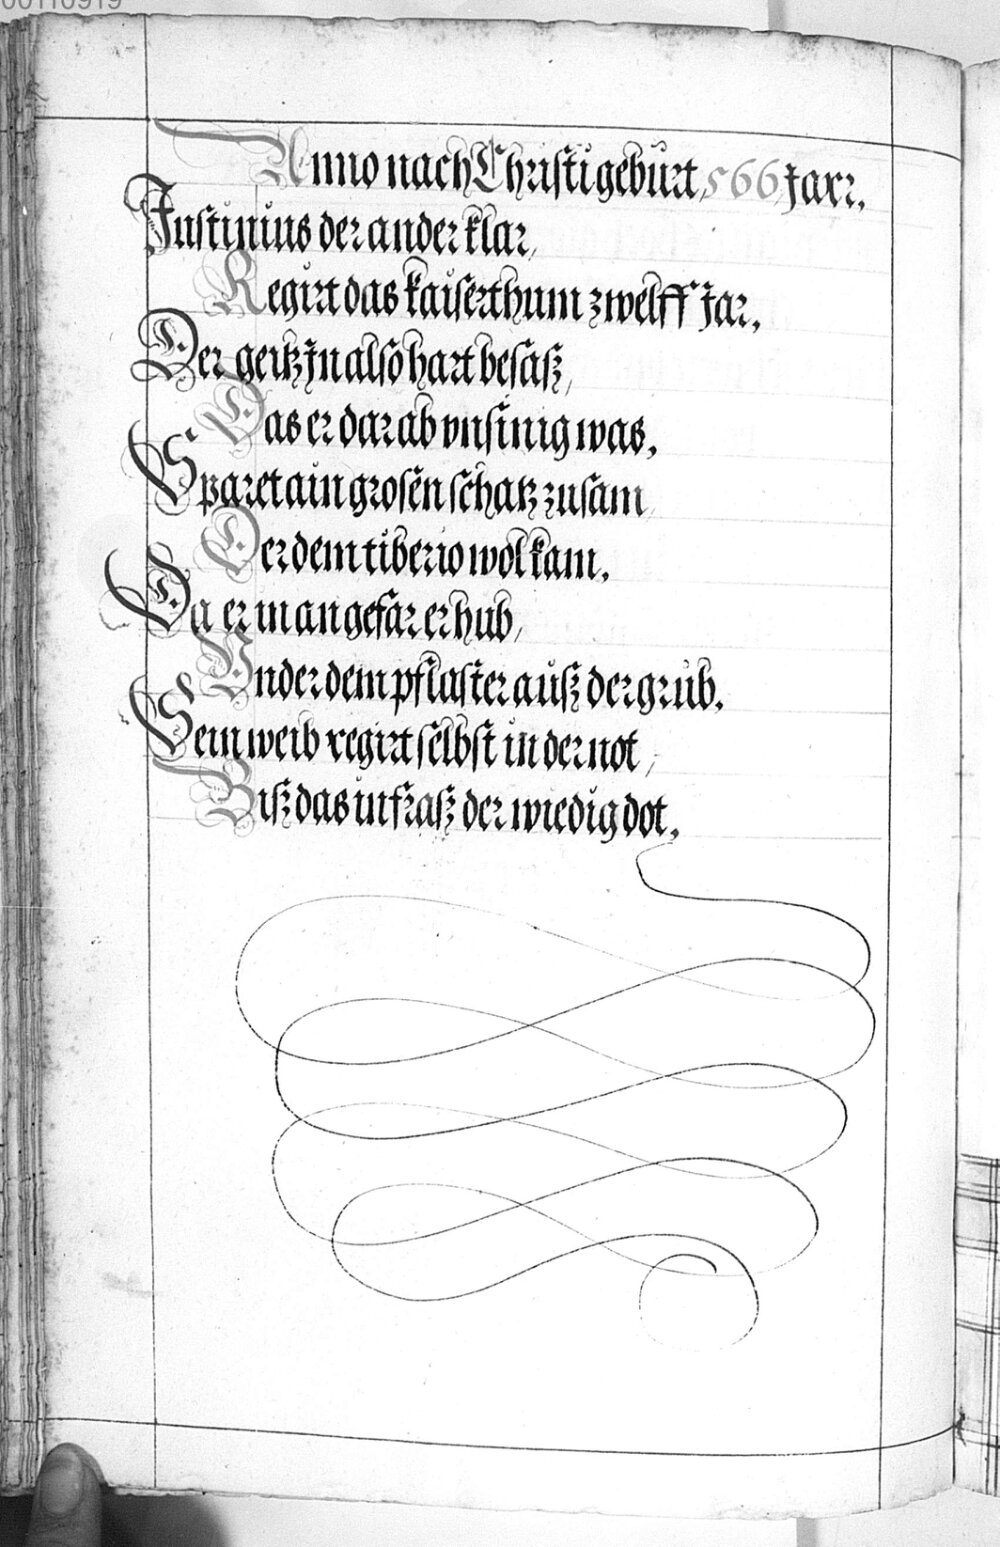 00110919
Anno nach Christi geburt, 566 Jarr.
Justinius der ander klar,
Regirt das kaiserthum zwelff Jar,
Der geitz Jn also hart besaß,
Das er dar ab vnsinig was,
Sparet ain grosen schatz zusam
Der dem tiberio wol kam.
Da er in an gefar erhub,
Vnder dem pflaster auß der grub.
Sein weib regirt selbst in der not,
Biß das in fraß der wiedig dot.